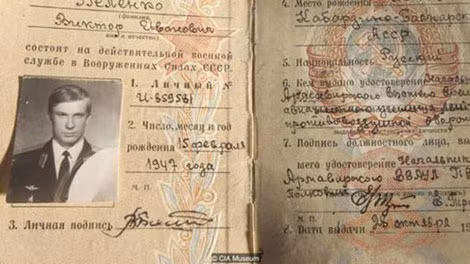 Беленко
(фамилия)
Виктор Иванович
(имя и отчество)
состоит на действительной военной
службе в Вооруженных Силах СССР.
1. Личный №
2. Число, месяц и год
рождения 15 февраля
1947 года
м. п.
3. Личная подпись
4. Место рождения
Кабардино-Балкарская
АССР
5. Национальность Русский
6. Кем выдано удостоверение
Армавирского высшего
училища
противовоздушной обороны
7. Подпись должностного лица,
мего удостоверение Начальник
Армавирского ВВАУЛ ПВО
Полковник
м. п.
8. Дата выдачи 26 октября
© CIA Museum